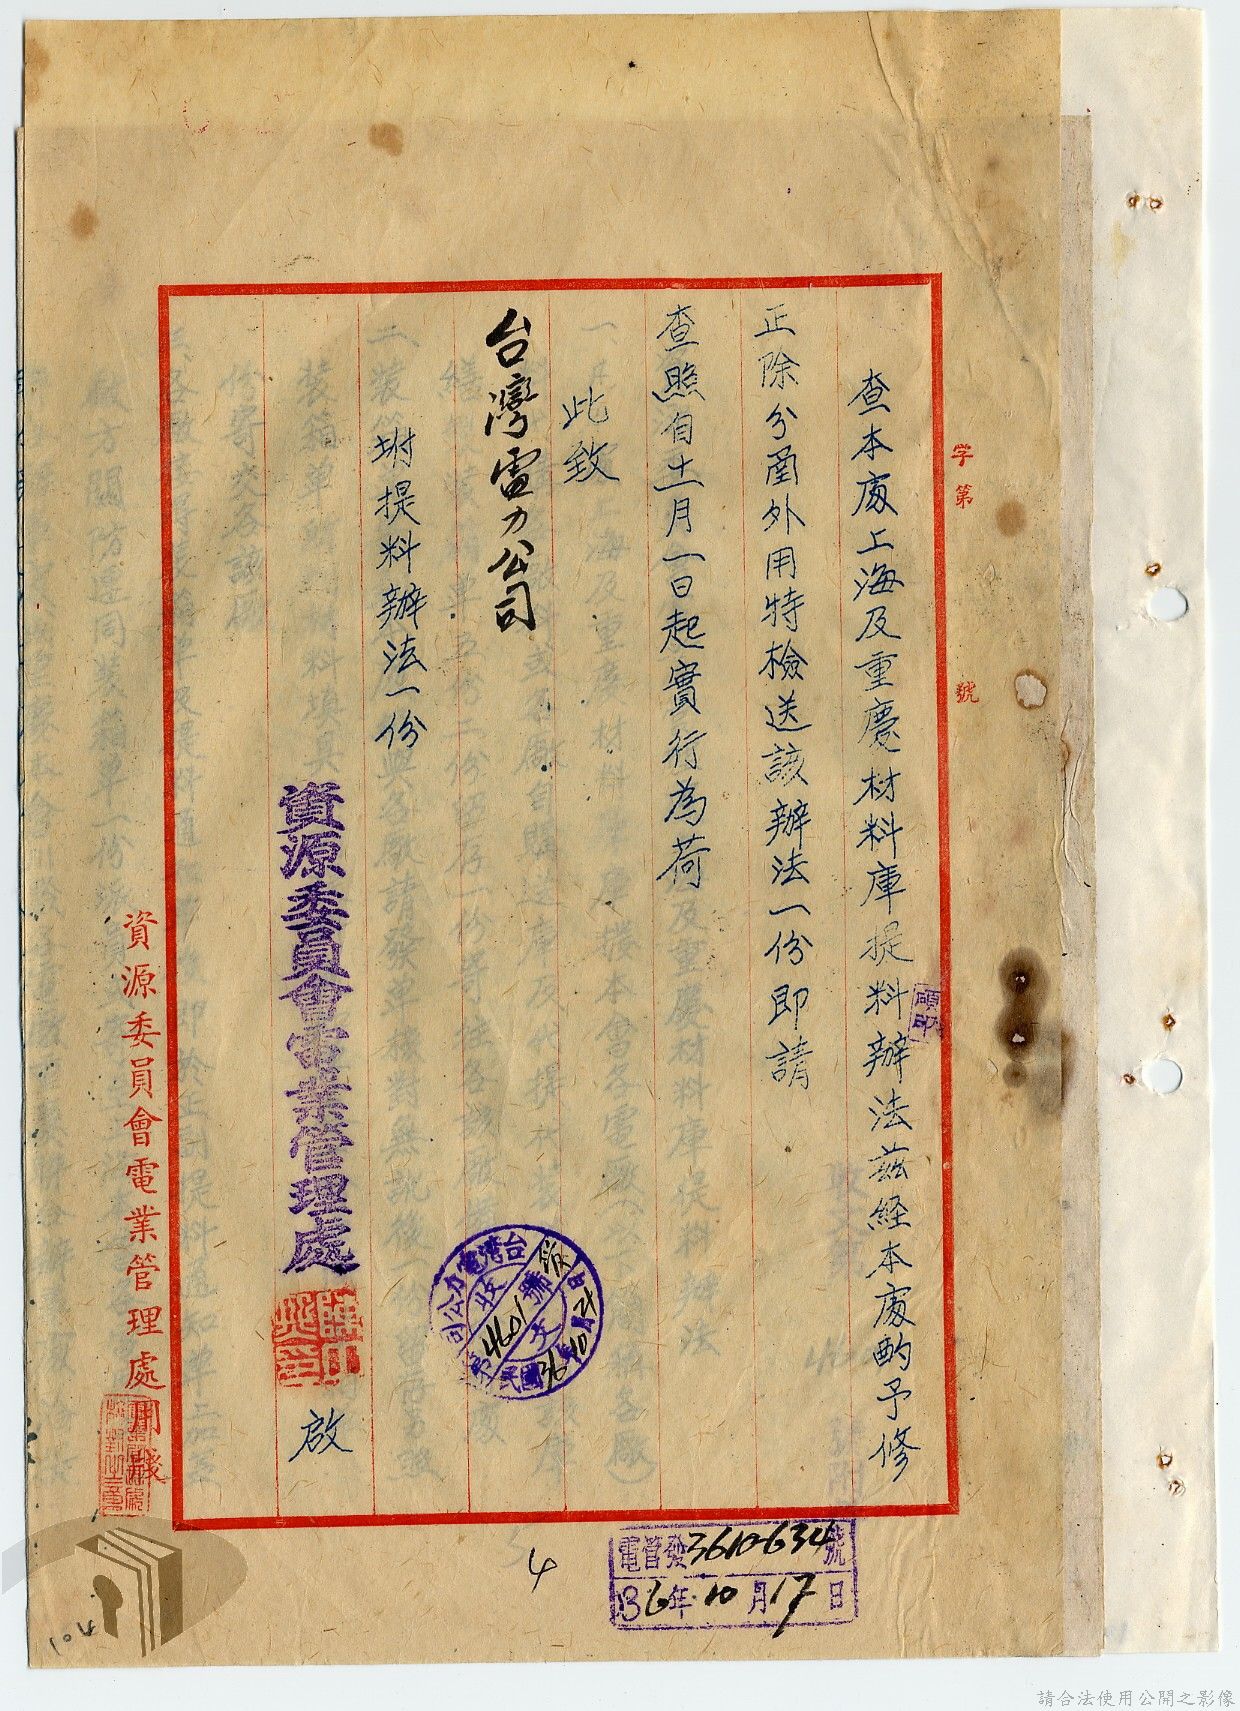 字第　　號
查本處上海及重慶材料庫提料辦法茲經本處酌予修
正除分函外用特檢送該辦法一份即請
查照自十一月一日起實行為荷
此致
台灣電力公司
坿提料辦法一份
資源委員會電業管理處
啟
資源委員會電業管理處用箋
台灣電力公司
收文
第4601號
民國36年10月21日
電管發3610-634號
36年10月17日
4
104
請合法使用公開之影像